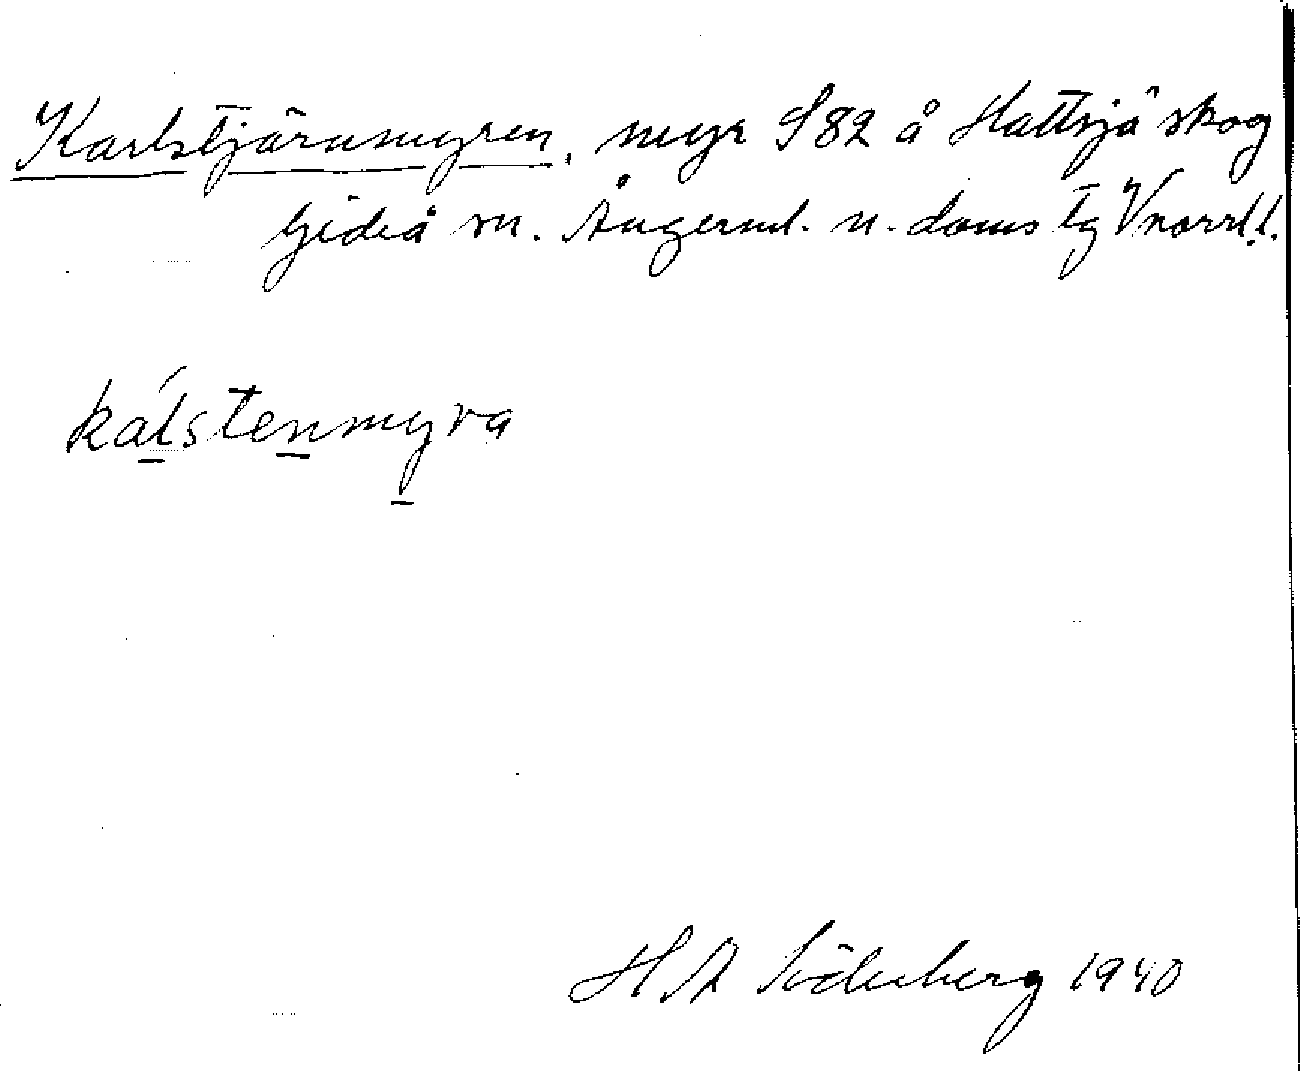 Karlstjärnmyren, myr S82 å Hattsjö skog
Gideå sn. Ångerml. n. doms tg Vnorrl.l.
kálstenmyra
H A Söderberg 1940